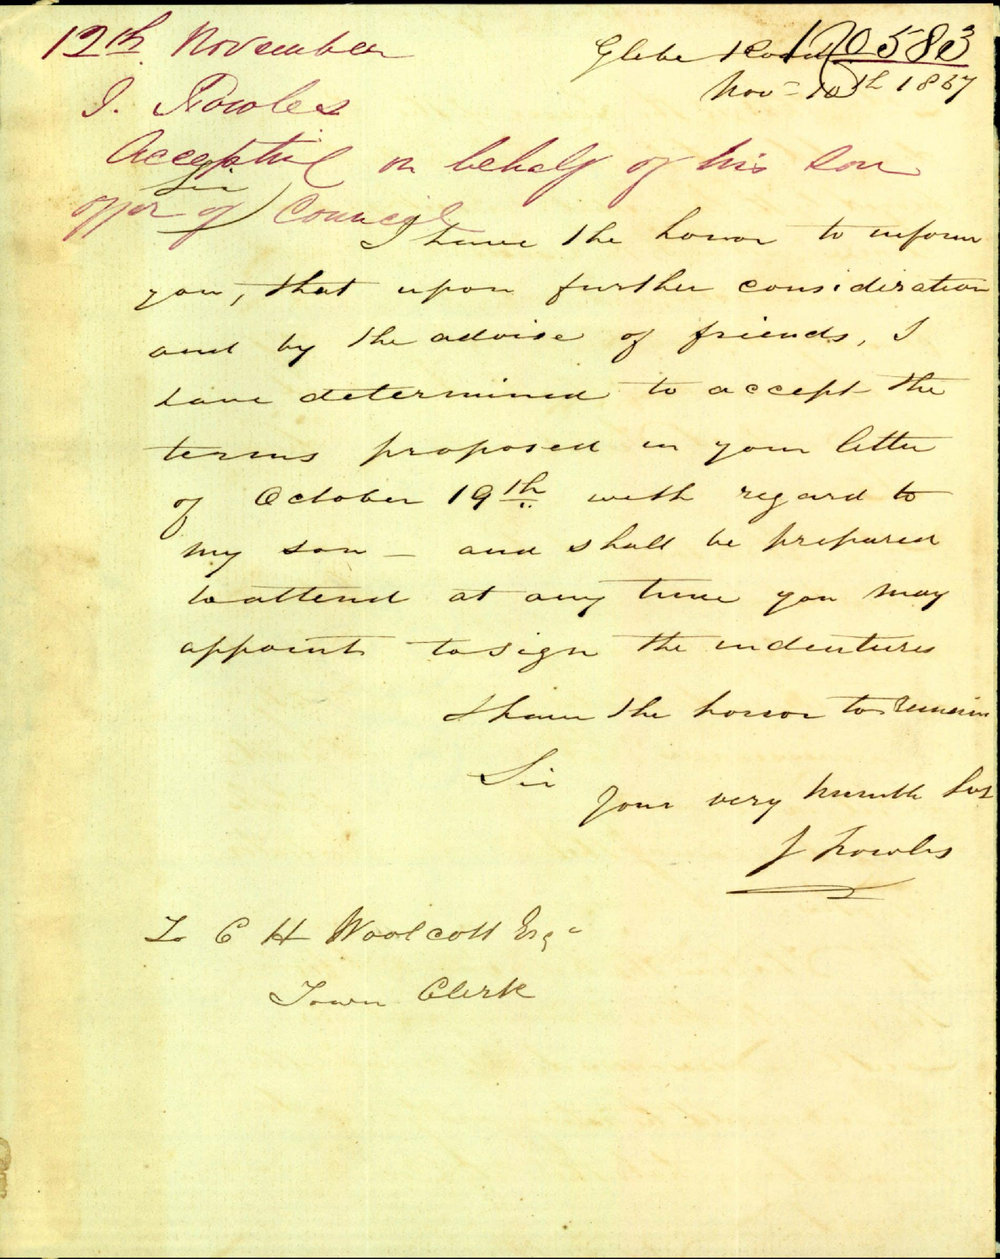 12th November
J. Rowles
Accepting on behalf of his son
offer of Council
Glebe Road 120583
Nov= 10th 1857
Sir
I have the honor to inform
you, that upon further consideration
and by the advise of friends, I
have determined to accept the
terms proposed in your letter
of October 19th with regard to
my son – and shall be prepared
to attend at any time you may
appoint to sign the indentures
I have the honor to remain
Sir
Your very humble Svt
J Rowles
To C H Woolcott Esq
Town Clerk